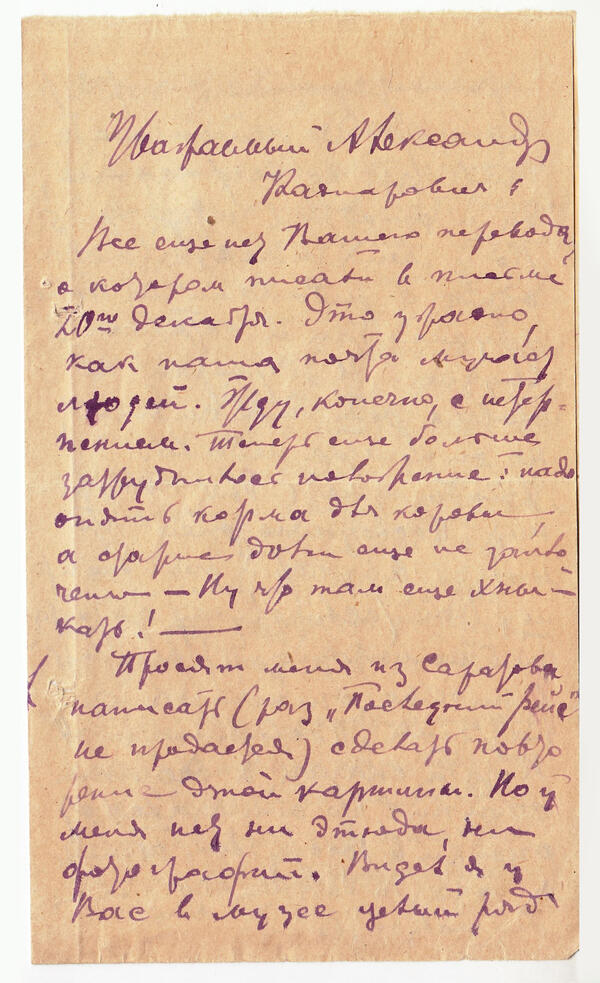 Уважаемый Александр
Каспарович!
Все еще нет Вашего перевода,
о котором писали в письме
20го декабря. Это ужасно,
как наша почта мучает
людей. Жду, конечно, с нетер-
пением. Теперь еще больше
надо
опять корма для коровы,
а старые долги еще не запла
чены — Ну что там еще хны-
кать! —
Просят меня из Саратова
написать (раз „Последний рейс"
не продается) сделать повто
рение этой картины. Но у
меня нет ни этюда, ни
фотографий. Видел я у
Вас в музее целый ряд